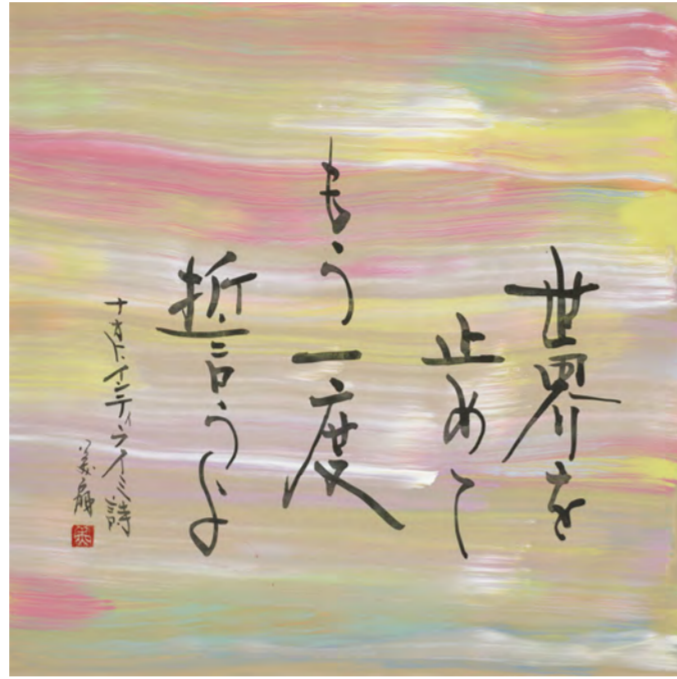 世界を
止めて
もう一度
誓うよ
ナオト・インティライミ詩
美扇